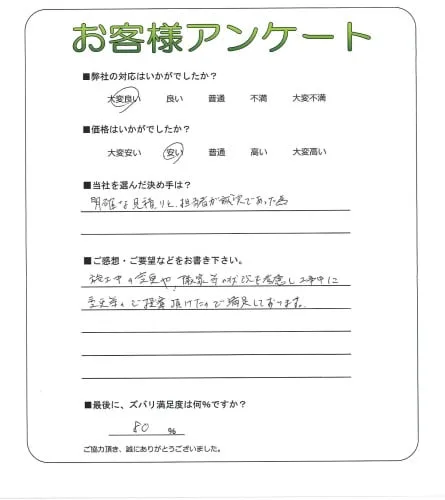 お客様アンケート
■弊社の対応はいかがでしたか？
大変良い 良い 普通 不満 大変不満
■価格はいかがでしたか？
大変安い 安い 普通 高い 大変高い
■当社を選んだ決め手は？
明確な見積りと、担当者が誠実であった為
■ご感想・ご要望などをお書き下さい。
施工中の変更や、搬家等の状況を考慮し工事中に
変更等のご提案頂けたので満足しております。
■最後に、ズバリ満足度は何％ですか？
80 ％
ご協力頂き、誠にありがとうございました。